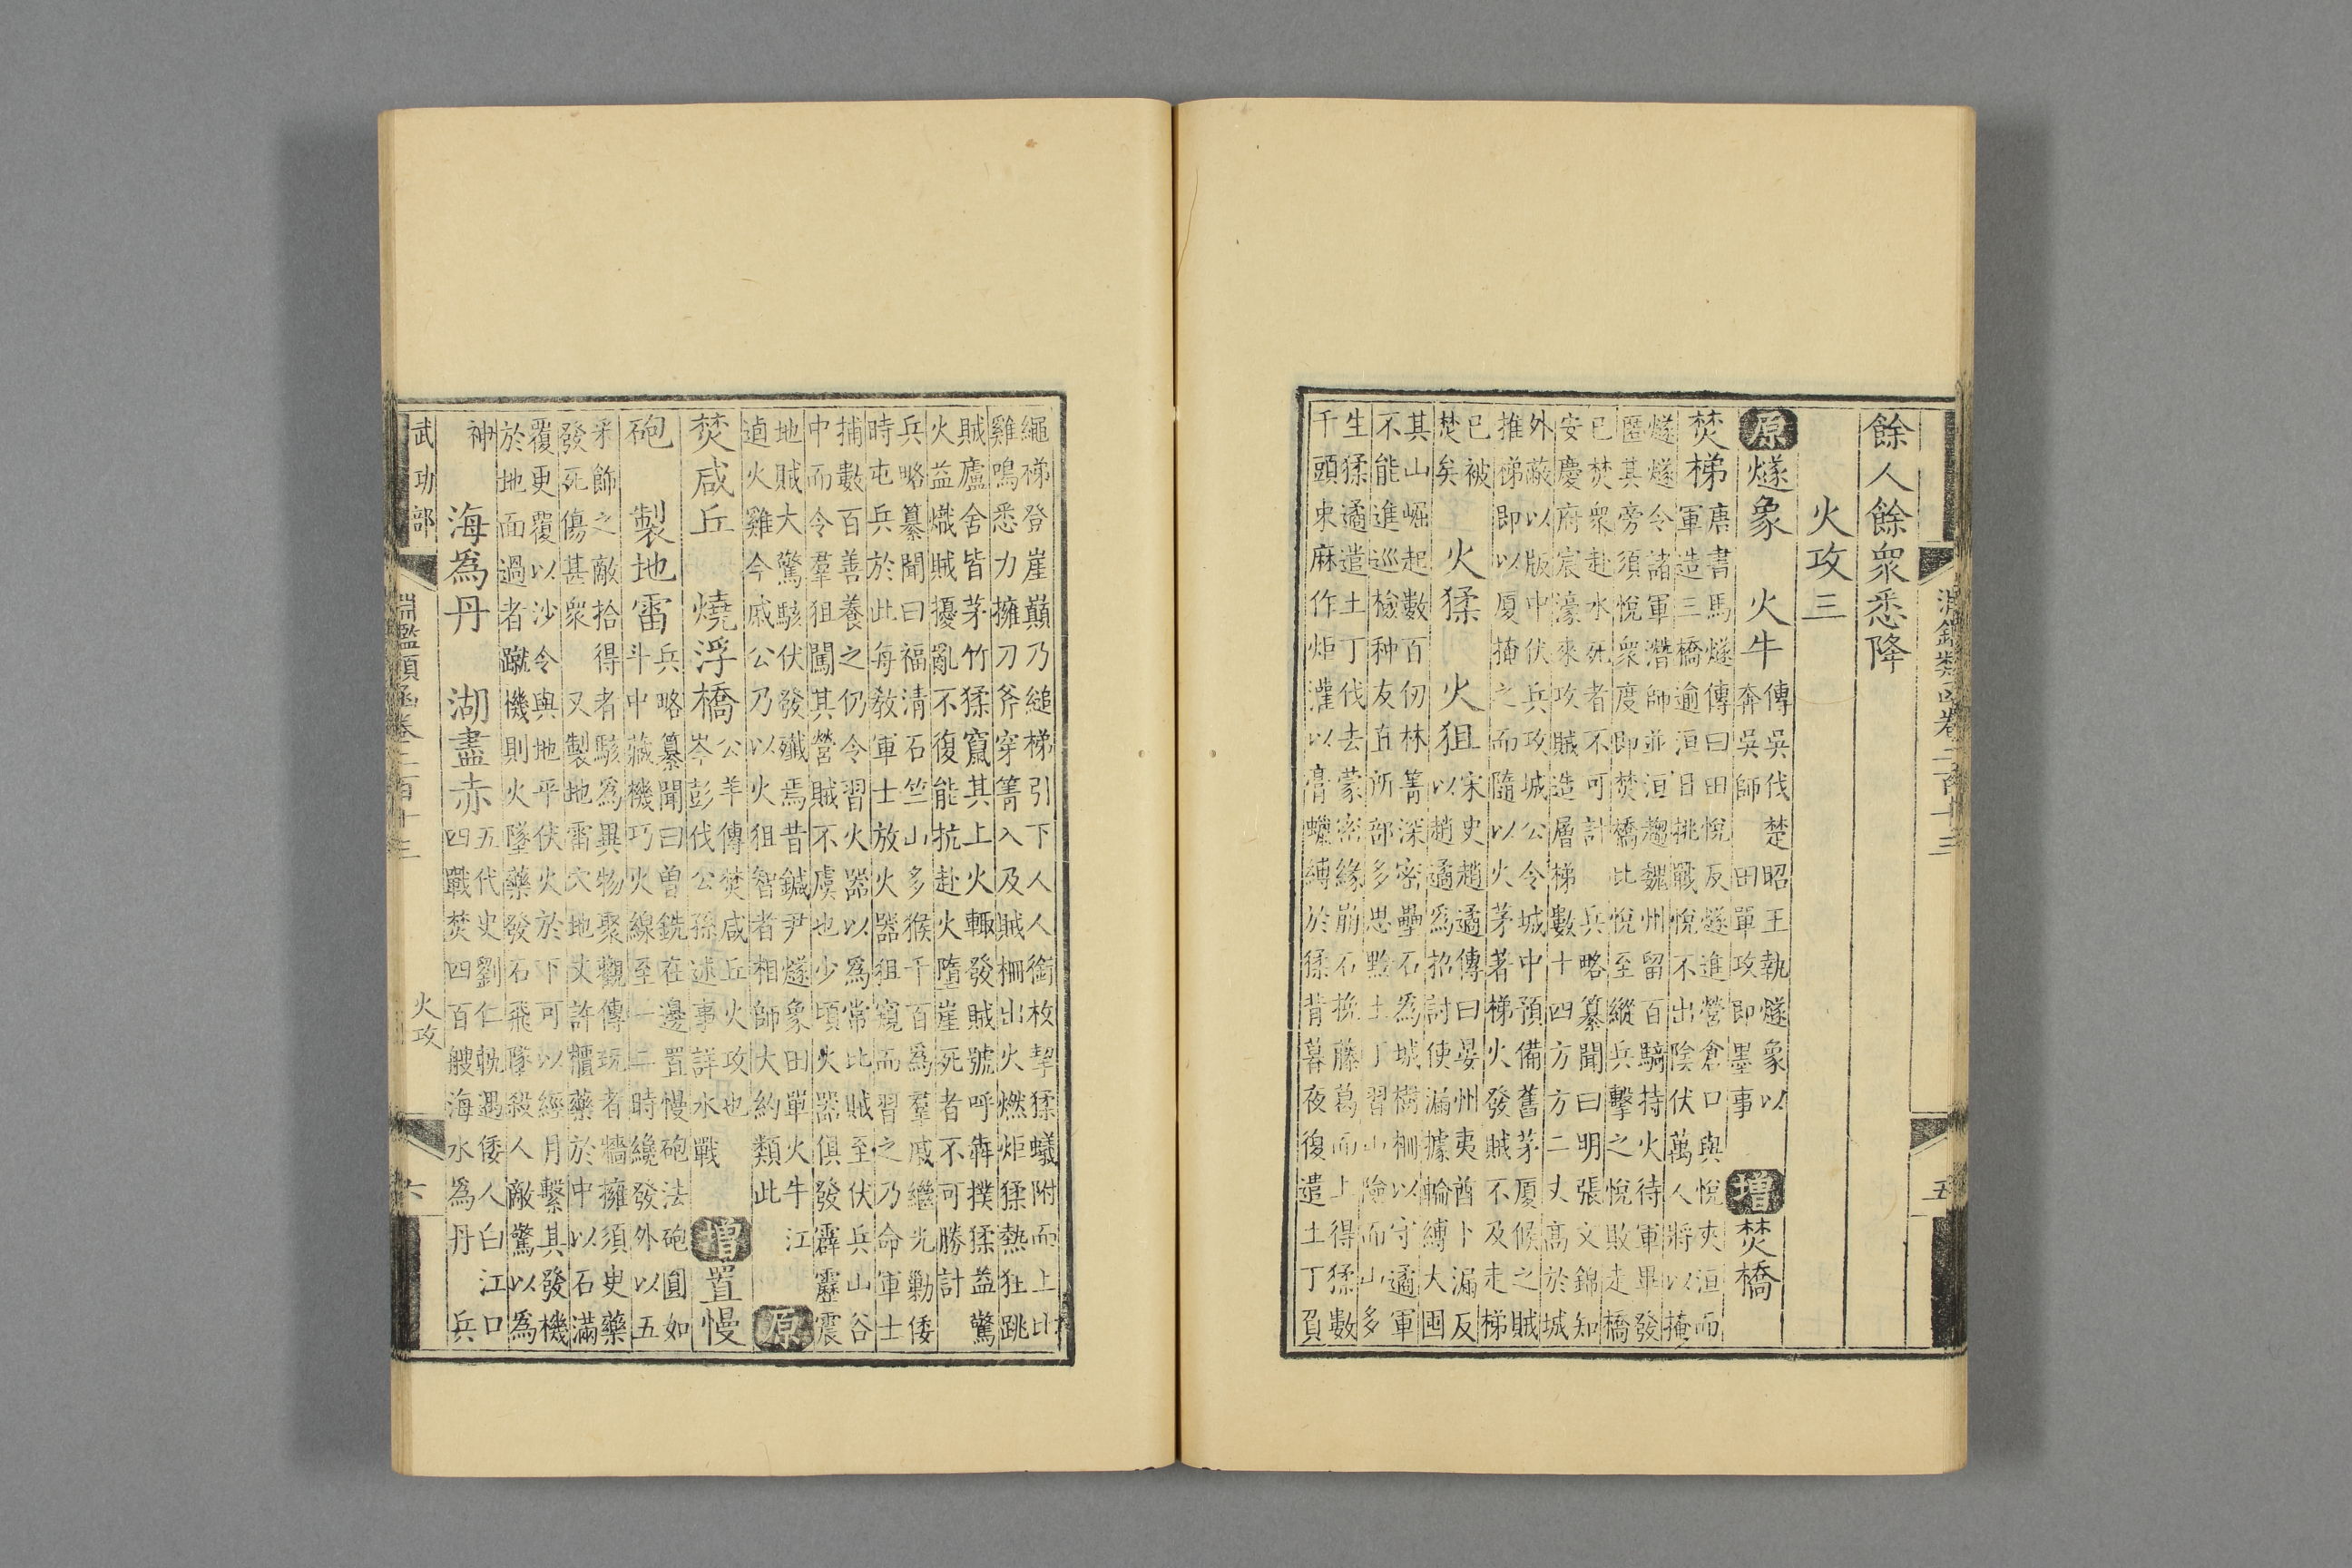 淵鑑類函卷二百十三 五
餘人餘衆悉降
火攻三
原燧象 火牛 傳吳伐楚昭王執燧象以
奔吳師 田單攻即墨事 增焚橋
焚梯 唐書馬燧傳曰田悅反燧進營倉口與悅夾洹而
軍造三橋逾洹日挑戰悅不出陰伏萬人將以掩
燧燧令諸軍潛師並洹趨魏州留百騎持火待軍畢發
匿其旁須悅衆度即焚橋比悅至縱兵擊之悅敗走橋
已焚衆赴水死者不可計 兵略纂聞曰明張文錦知
安慶府宸濠來攻賊造層梯數十四方方二丈高於城
外蔽以版中伏兵攻城公令城中預備舊茅厦候之賊
推梯即以厦掩之而隨以火茅著梯火發賊不及走梯
已被
焚矣 火猱 火狙 宋史趙遹傳曰晏州夷酋卜漏反
以趙遹爲招討使漏據輪縛大囤
其山崛起數百仞林箐深密壘石爲城樹柵以守遹軍
不能進巡檢种友直所部多思黔土丁習山險而山多
生猱遹遣土丁伐去蒙密緣崩石挽藤葛而上得猱數
千頭束麻作炬灌以膏蠟縛於猱背暮夜復遣土丁負
繩梯登崖巔乃縋梯引下人人銜枚挈猱蟻附而上比
雞鳴悉力擁刀斧穿箐入及賊柵出火燃炬猱熱狂跳
賊廬舍皆茅竹猱竄其上火輒發賊號呼犇撲猱益驚
火益熾賊擾亂不復能抗赴火墮崖死者不可勝計
兵略纂聞曰福清石竺山多猴千百爲羣戚繼光勦倭
時屯兵於此每教軍士放火器狙窺而習之乃命軍士
捕數百善養之仍令習火器以爲常比賊至伏兵山谷
中而令羣狙闖其營賊不虞也少頃火器俱發霹靂震
地賊大驚駭伏發殲焉昔鍼尹燧象田單火牛江
逌火雞今戚公乃以火狙智者相師大約類此 原
焚咸丘 燒浮橋 公羊傳焚咸丘火攻也
岑彭伐公孫述事詳水戰 增置慢
砲 製地雷 兵略纂聞曰曾銑在邊置慢砲法砲圓如
斗中藏機巧火線至一二時纔發外以五
釆飾之敵拾得者駭爲異物聚觀傳玩者牆擁須臾藥
發死傷甚衆 又製地雷穴地丈許櫃藥於中以石滿
覆更覆以沙令與地平伏火於下可以經月繫其發機
於地面過者蹴機則火墜藥發石飛墜殺人敵驚以爲
神 海爲丹 湖盡赤 五代史劉仁軌遇倭人白江口
四戰焚四百艘海水爲丹 兵
武功部 淵鑑類函卷二百十三 火攻 六